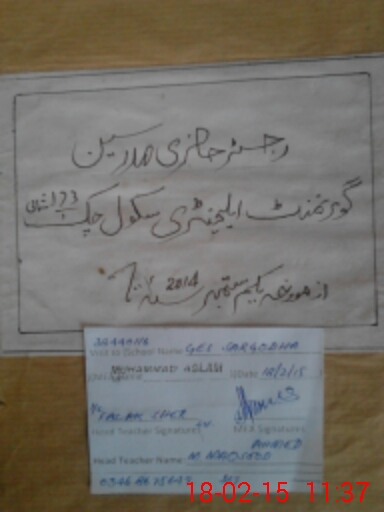 رجسٹر حاضری مدرسین
گورنمنٹ ایلیمنٹری سکول چک 123 شمالی
از مورخہ یکم ستمبر سنہ 2014 تا
Visit to (School Name) GES SARGODHA
MUHAMMAD ASLAM Date 18/2/15
FALAK SHER
Head Teacher Signatures MEA Signatures
AHMED
Head Teacher Name M MAQSOOD
18-02-15 11:37